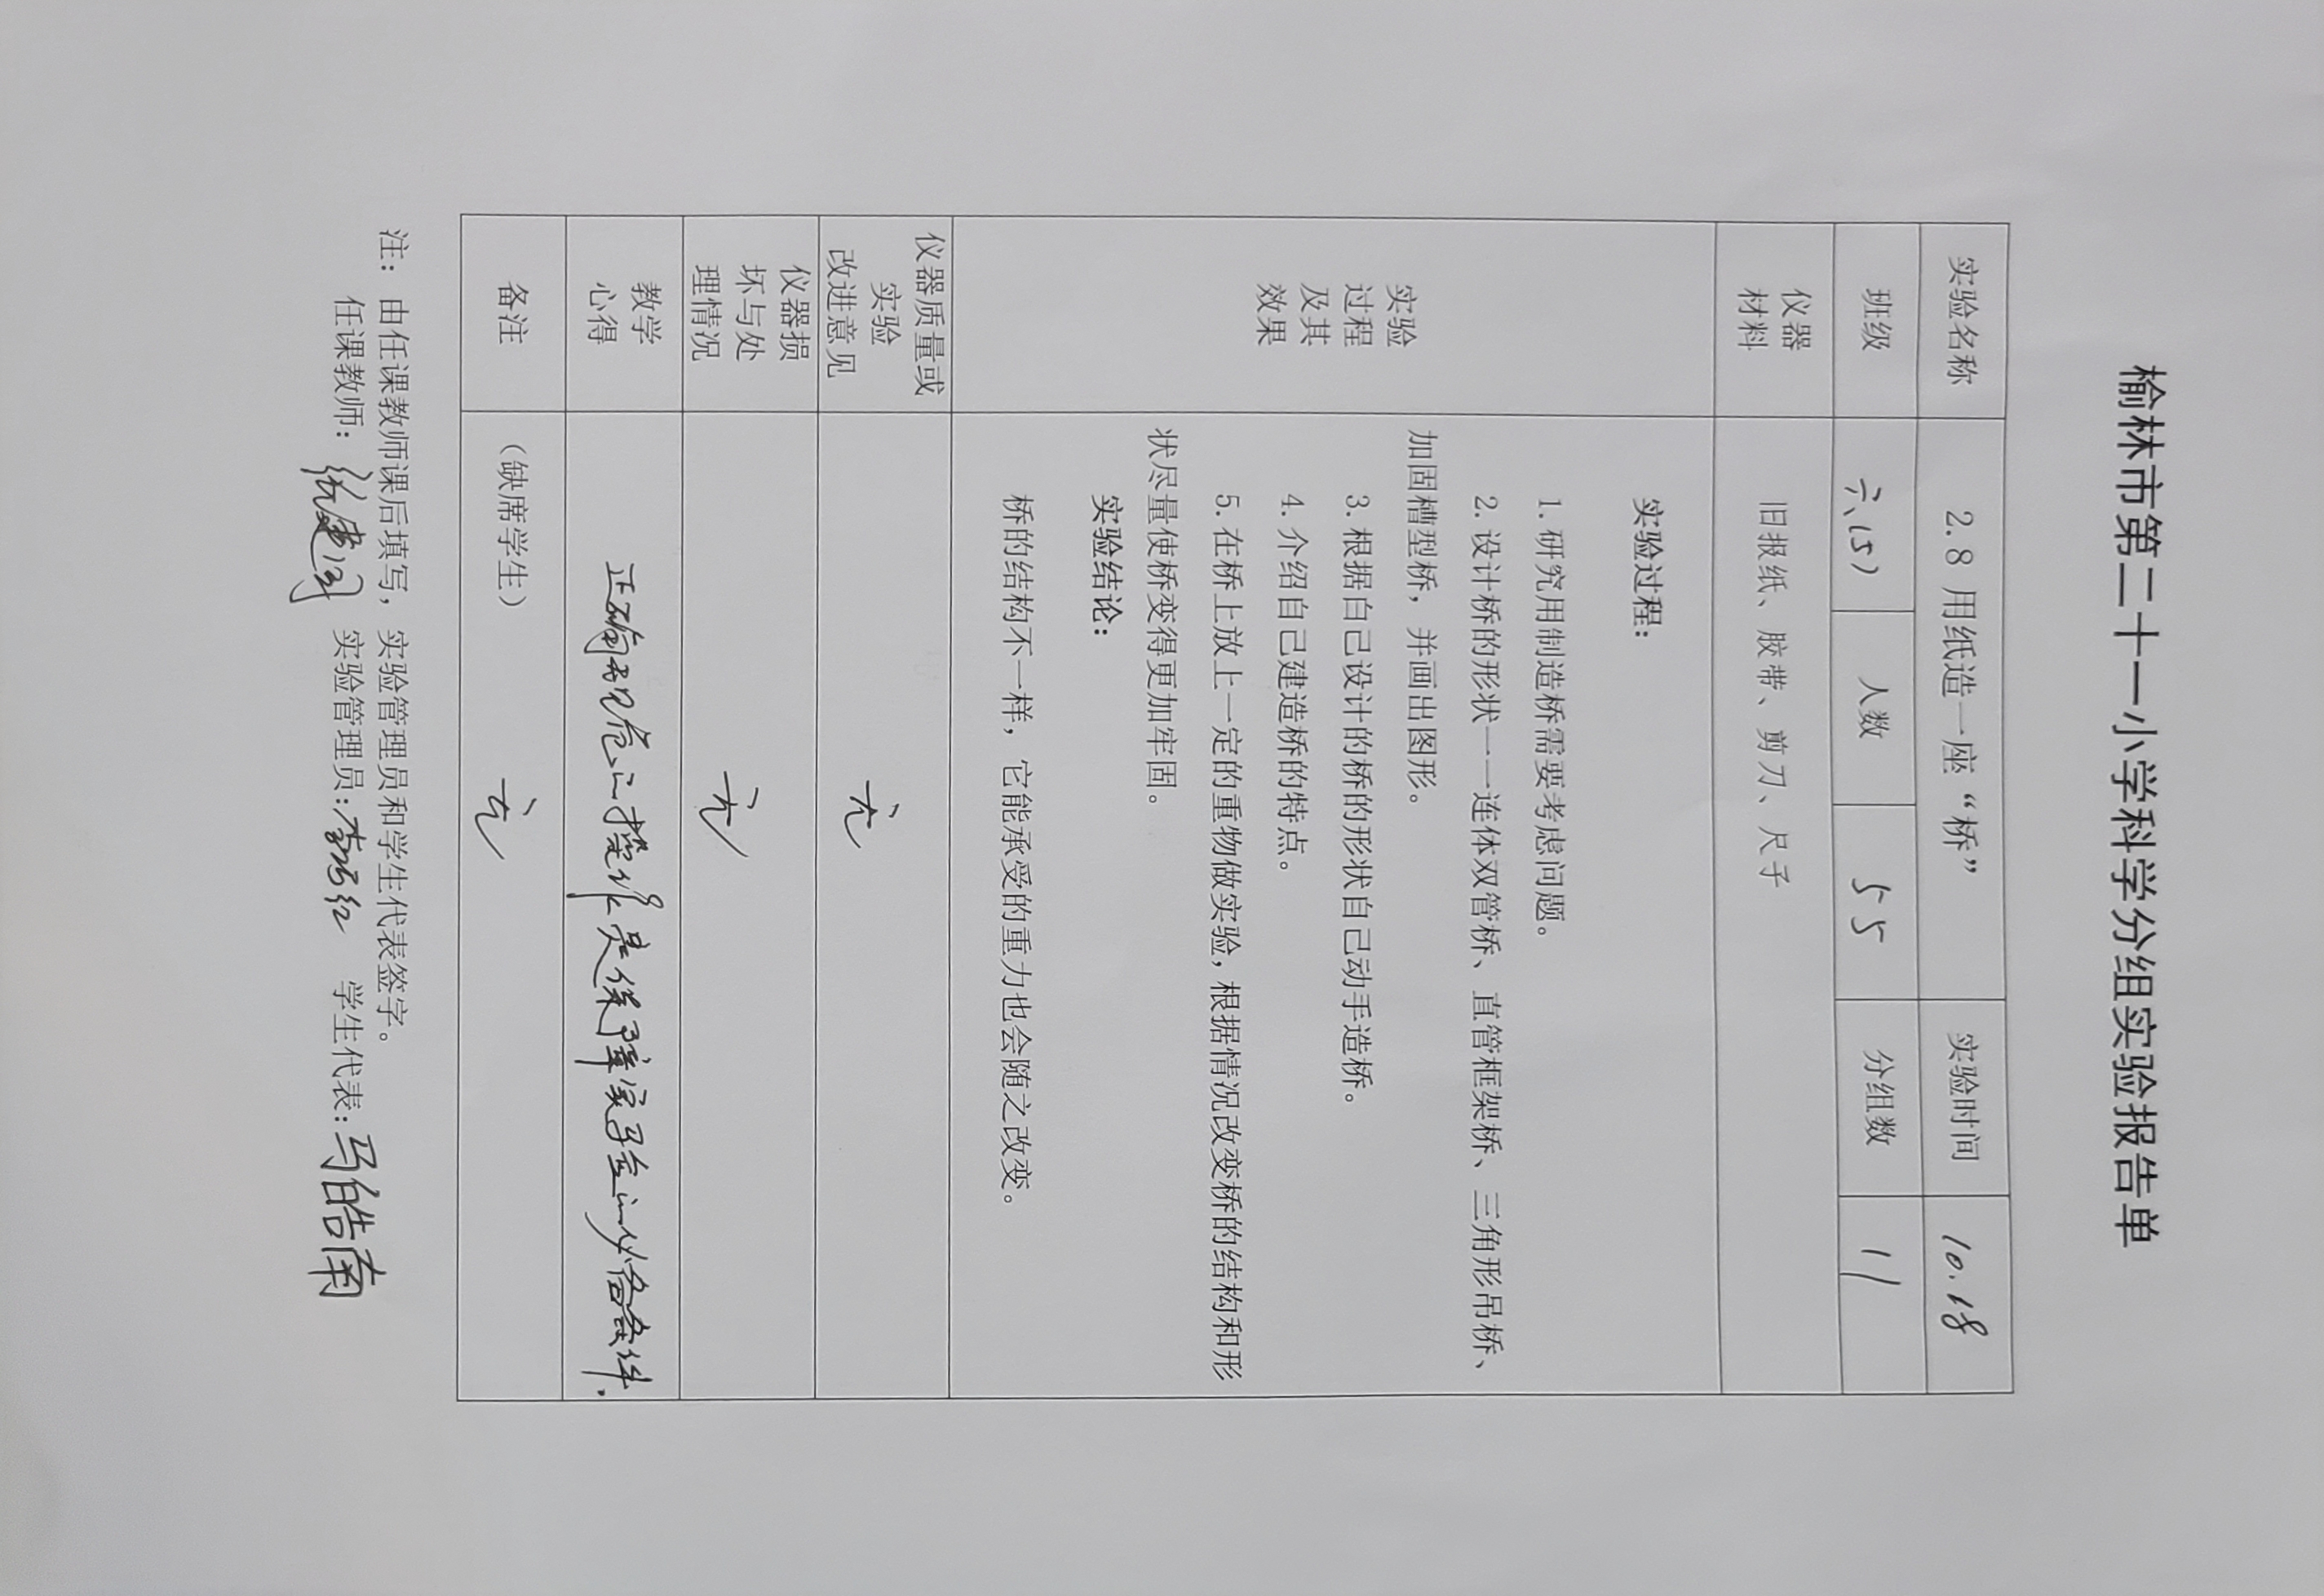 榆林市第二十一小学科学分组实验报告单
实验名称 2.8 用纸造一座“桥” 实验时间 10.18
班级 六(5) 人数 55 分组数 11
仪器
材料
旧报纸、胶带、剪刀、尺子
实验
过程
及其
效果
实验过程：
1. 研究用制造桥需要考虑问题。
2. 设计桥的形状一一连体双管桥、直管框架桥、三角形吊桥、
加固槽型桥，并画出图形。
3. 根据自己设计的桥的形状自己动手造桥。
4. 介绍自己建造桥的特点。
5. 在桥上放上一定的重物做实验，根据情况改变桥的结构和形
状尽量使桥变得更加牢固。
实验结论：
桥的结构不一样，它能承受的重力也会随之改变。
仪器质量或
实验
改进意见
无
仪器损
坏与处
理情况
无
教学
心得
正确规范的操作是保障实验的必备条件.
备注
（缺席学生）
无
注：由任课教师课后填写，实验管理员和学生代表签字。
任课教师： 实验管理员: 学生代表:马皓南